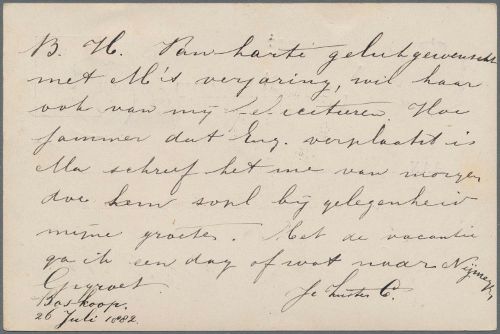 B. H. Van harte gelukgewenscht
met M's verjaring, wil haar
ook van mij feliciteeren. Hoe
jammer dat Eug. verplaatst is
Ma schreef het me van morgen
doe hem svpl bij gelegenheid
mijne groeten. Met de vacantie
ga ik een dag of wat naar Nijmegen
Gegroet
Je zuster C.
Boskoop.
26 Juli 1882.